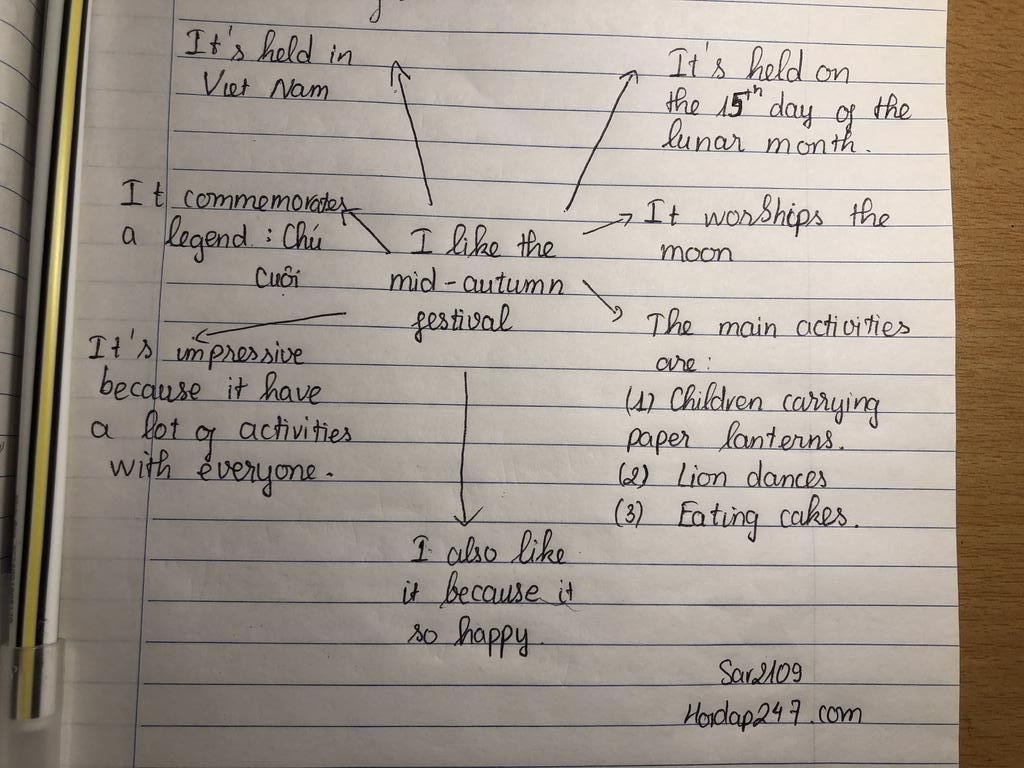 It's held in
Viet Nam
It's held on
the 15th day of the
lunar month.
It commemorates
a legend : Chú
Cuội
I like the
mid-autumn
festival
It worships the
moon
The main activities
are:
(1) Children carrying
paper lanterns.
(2) Lion dances
(3) Eating cakes.
It's impressive
because it have
a lot of activities
with everyone.
I also like
it because it
so happy.
Sar2109
Hoidap247.com